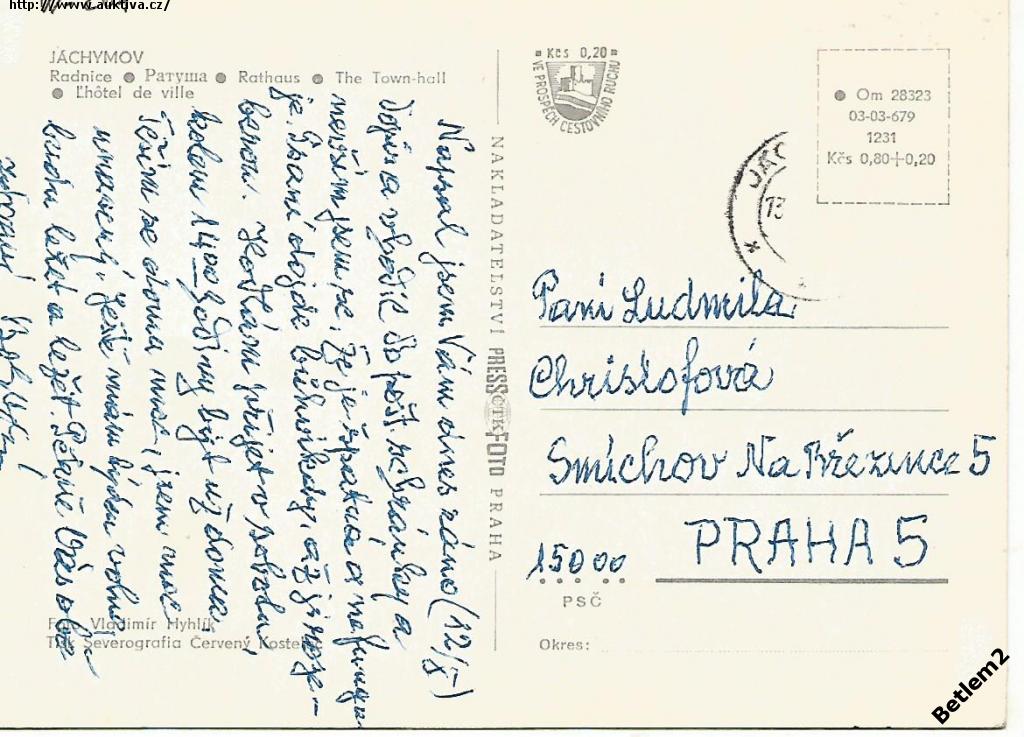 http://www.auktiva.cz/
JÁCHYMOV
Radnice ● Ратуша ● Rathaus ● The Town-hall
● L'hôtel de ville
Napsal jsem Vám dnes ráno (12/5)
dopis a vhodil do pošt. schránky a
je. Psaní dojde
beron. Hodlám přijet v sobotu,
kolem 1400 hodiny být už doma.
Těším se domu moc, jsem moc
unavený. Ještě mám týden volno,
budu ležet a ležet. Pěkně Vás oba
zdraví
Foto Vladimír Hyhlík
Tisk Severografia Červený Kostelec
NAKLADATELSTVÍ PRESSFOTO PRAHA
ČTK
Kčs 0,20
VE PROSPĚCH CESTOVNÍHO RUCHU
● Om 28323
03-03-679
1231
Kčs 0,80+0,20
JÁC
13
Paní Ludmila
Christofová
Smíchov Na Březince 5
PRAHA 5
15000
PSČ
Okres:
Betlem2